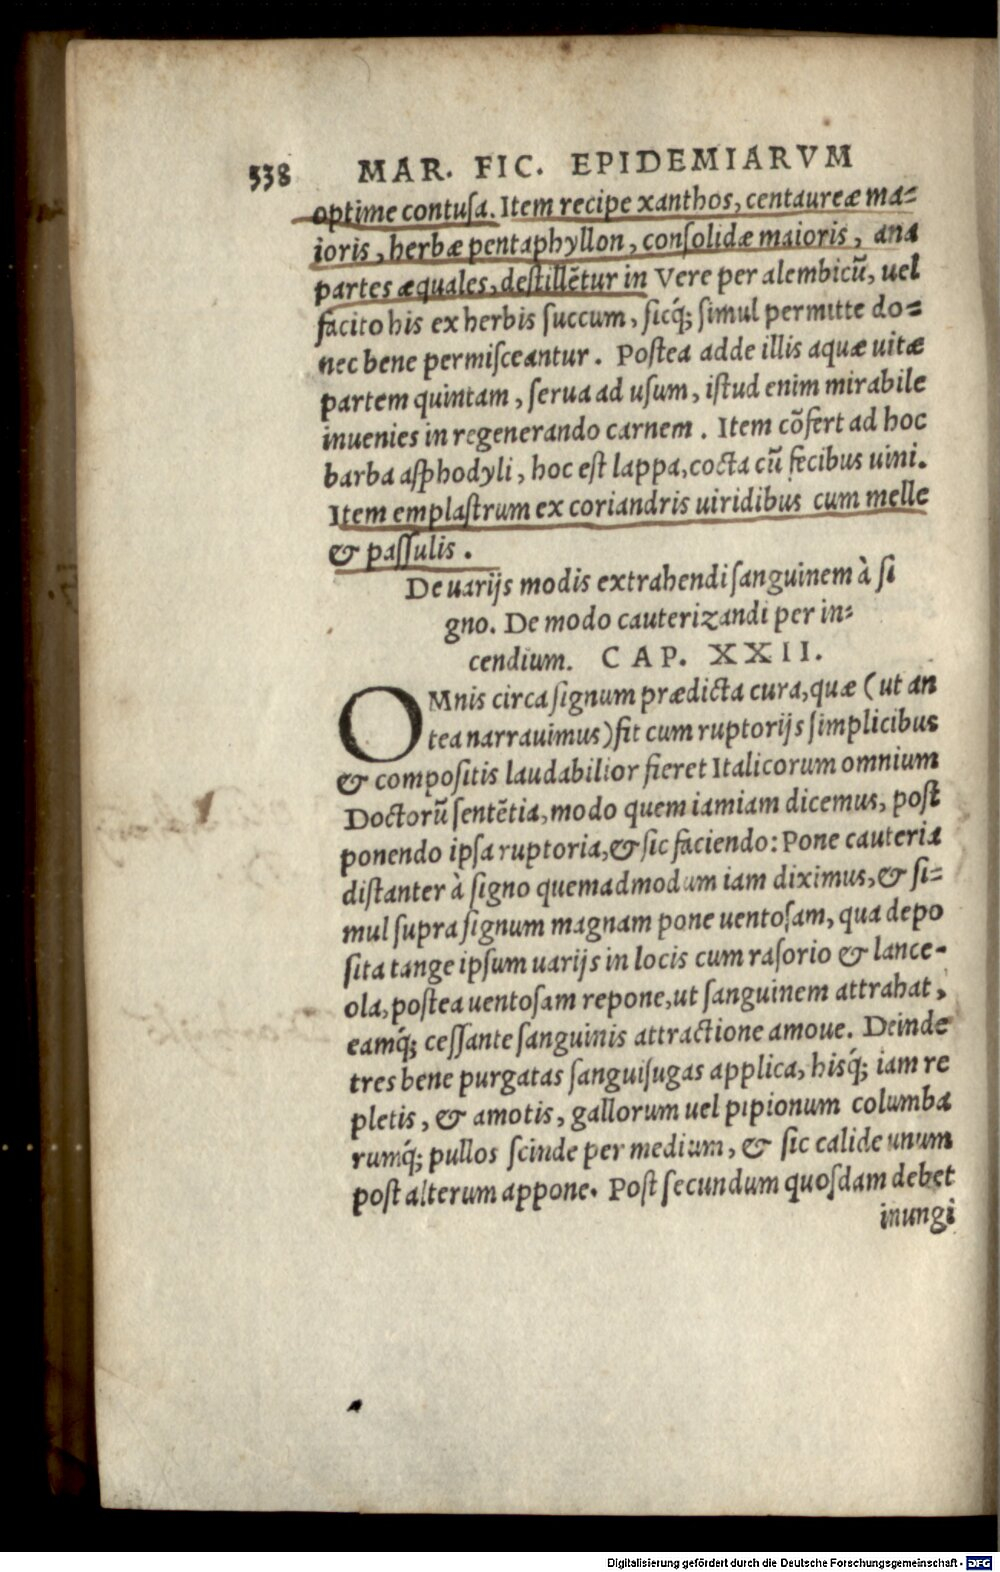 338 MAR. FIC. EPIDEMIARVM
optime contuſa. Item recipe xanthos, centaureæ ma=
ioris, herbæ pentaphyllon, conſolidæ maioris, ana
partes æquales, deſtillẽtur in Vere per alembicũ, uel
facito his ex herbis ſuccum, ſicq́; ſimul permitte do=
nec bene permiſceantur. Poſtea adde illis aquæ uitæ
partem quintam, ſerua ad uſum, iſtud enim mirabile
inuenies in regenerando carnem. Item cõfert ad hoc
barba aſphodyli, hoc eſt lappa, cocta cũ fecibus uini.
Item emplaſtrum ex coriandris uiridibus cum melle
& paſſulis.
De uarijs modis extrahendi ſanguinem à ſi
gno. De modo cauterizandi per in=
cendium. CAP. XXII.
OMnis circa ſignum prædicta cura, quæ (ut an
tea narrauimus) fit cum ruptorijs ſimplicibus
& compoſitis laudabilior fieret Italicorum omnium
Doctorũ ſentẽtia, modo quem iamiam dicemus, poſt
ponendo ipſa ruptoria, & ſic faciendo: Pone cauteria
diſtanter à ſigno quemadmodum iam diximus, & ſi=
mul ſupra ſignum magnam pone uentoſam, qua depo
ſita tange ipſum uarijs in locis cum raſorio & lance-
ola, poſtea uentoſam repone, ut ſanguinem attrahat,
eamq́; ceſſante ſanguinis attractione amoue. Deinde
tres bene purgatas ſanguiſugas applica, hisq́; iam re
pletis, & amotis, gallorum uel pipionum columba
rumq́; pullos ſcinde per medium, & ſic calide unum
poſt alterum appone. Poſt ſecundum quoſdam debet
inungi
Digitalisierung gefördert durch die Deutsche Forschungsgemeinschaft - DFG